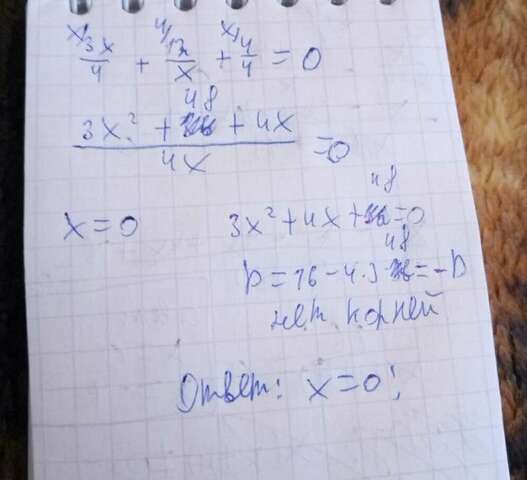 x/ 3x/4 + 4/ 12/x + x/ 4/4 = 0
48
3x² + + 4x / 4x = 0
48
x = 0 3x² + 4x + = 0
48
D = 16 - 4·3· = -D
нет корней
Ответ: x = 0!